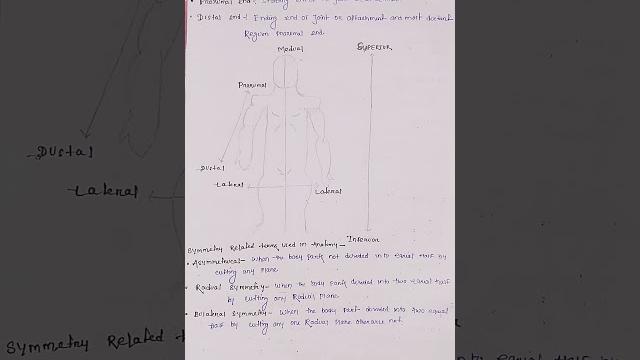 Proximal end:
• Distal end:- Ending end or joint or attachment and most distent
Region proximal end.
Medial
SUPERIOR
Proximal
Distal
Lateral
Lateral
Inferior
Symmetry Related terms used in anatomy—
• Asymmetrical- When the body parts not divided into equal half by
cutting any plane
• Radial symmetry- When the body parts divided into two equal half
by cutting any Radial plane
• Bilateral symmetry- When the body part divided into two equal
half by cutting any one Radial plane otherwise not.
Distal
Lateral
Symmetry Related